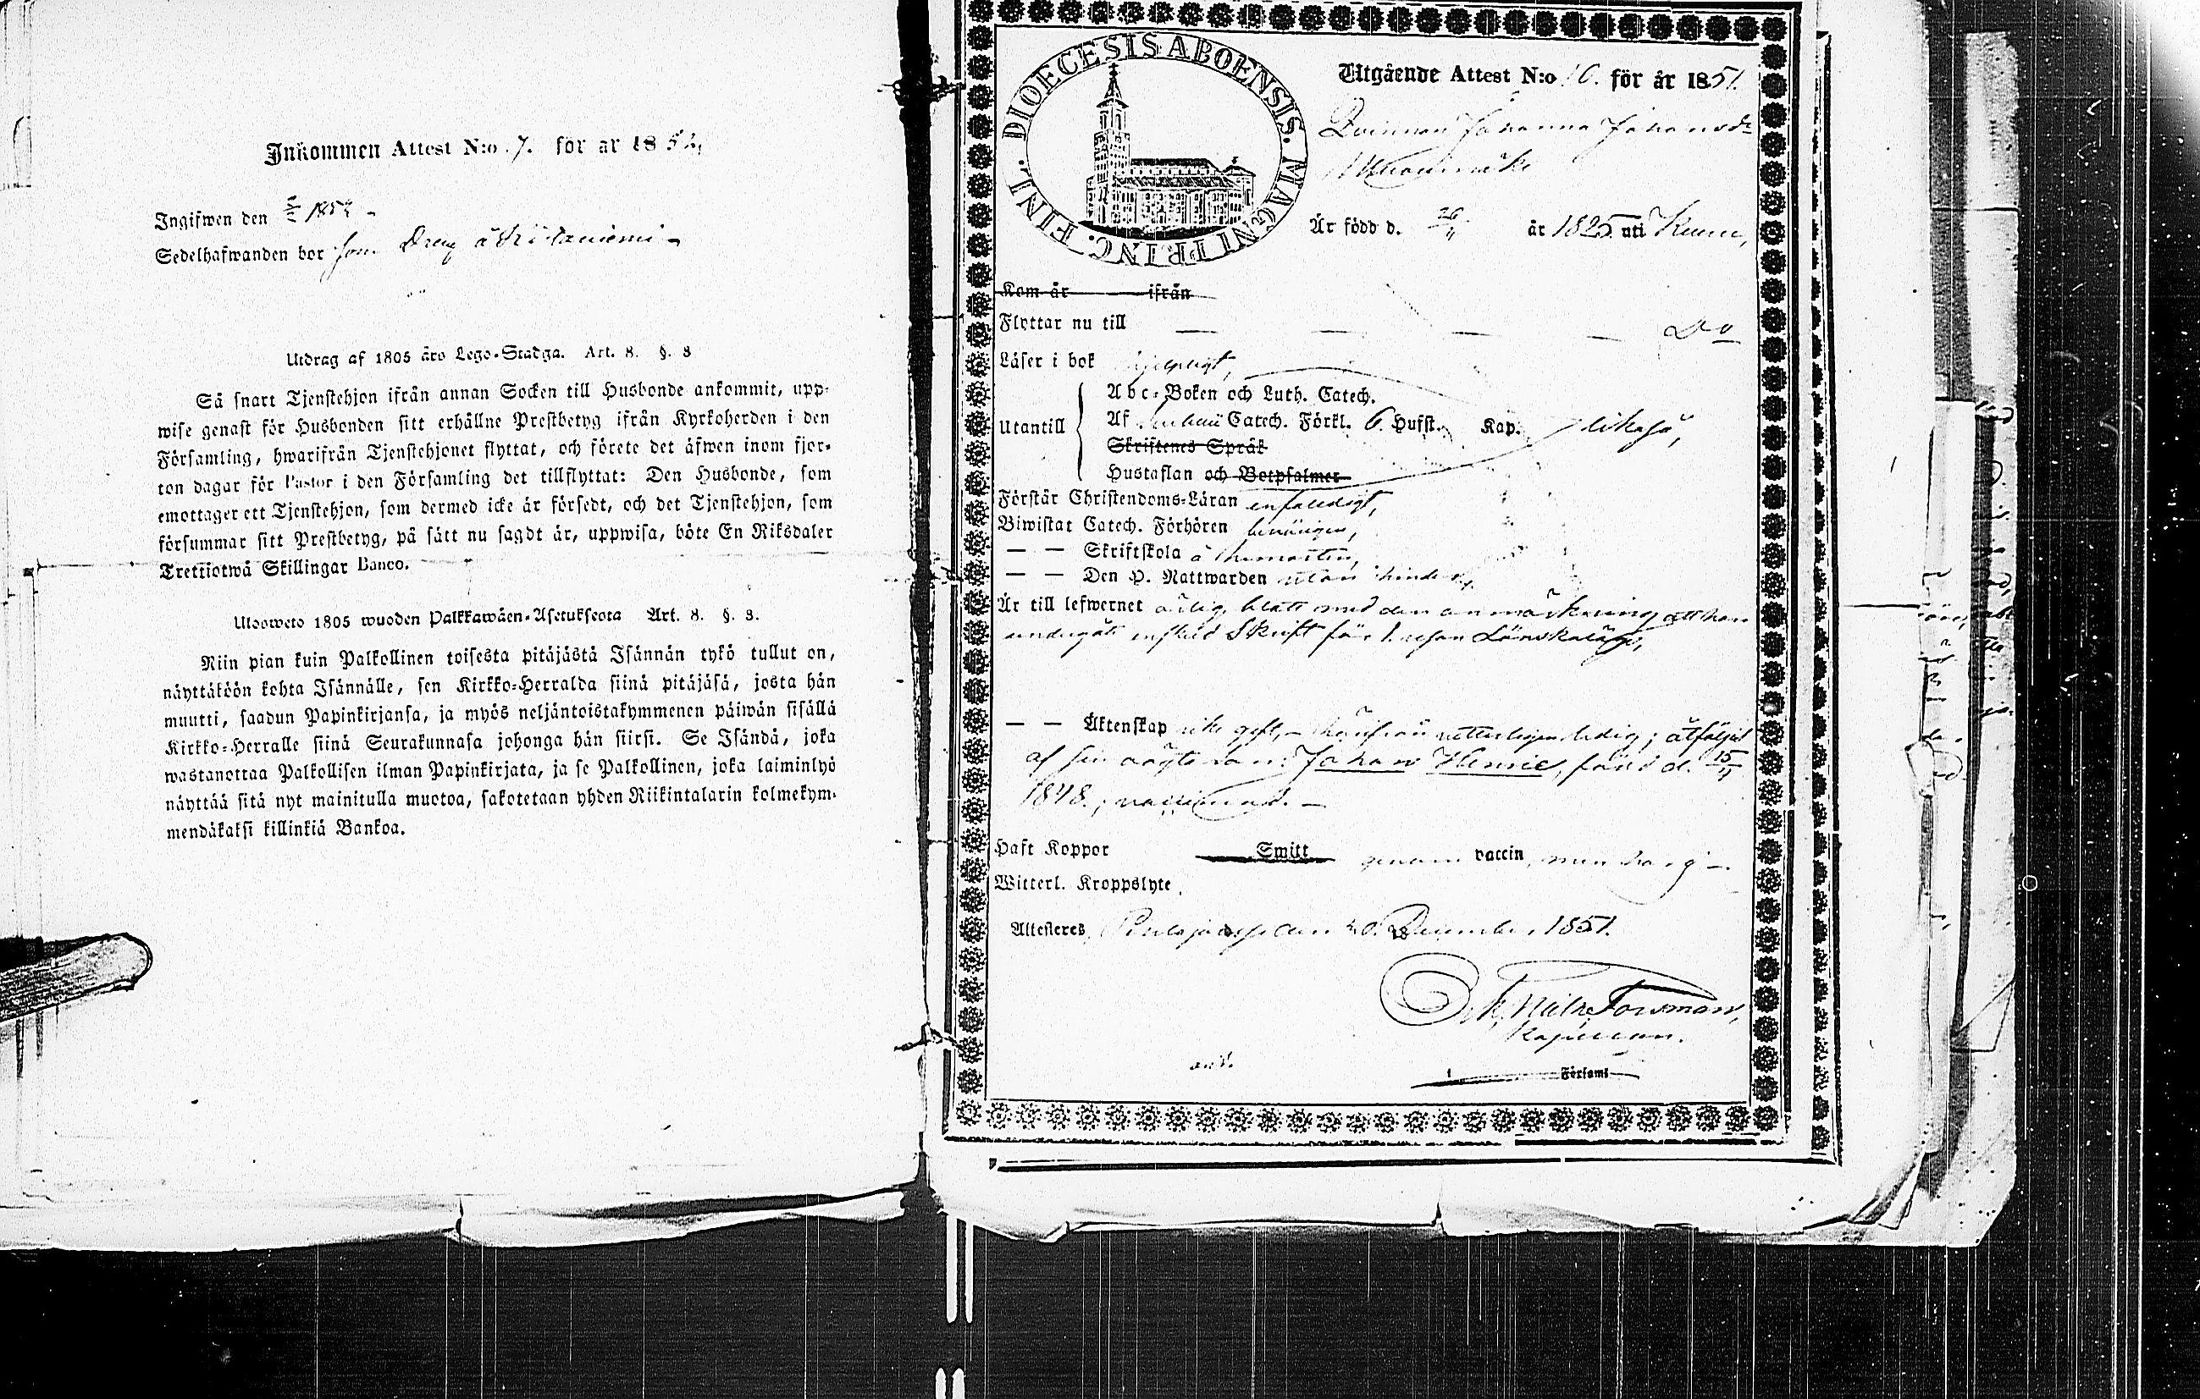 Inkommen Attest N:o 7. för år 1852,
Ingifwen den 1852 -
Sedelhafwanden bor som Dreng å
Utdrag af 1805 års Lego-Stadga. Art. 8. §. 8
Så snart Tjenstehjon ifrån annan Socken till Husbonde ankommit, upp-
wise genast för Husbonden sitt erhållne Prestbetyg ifrån Kyrkoherden i den
Församling, hwarifrån Tjenstehjonet flyttat, och förete det äfwen inom fjor-
ton dagar för Pastor i den Församling det tillflyttat: Den Husbonde, som
emottager ett Tjenstehjon, som dermed icke är försedt, och det Tjenstehjon, som
försummar sitt Prestbetyg, på sätt nu sagdt är, uppwisa, böte En Riksdaler
Trettiotwå Skillingar Banco.
Ulosweto 1805 wuoden Palkkawäen-Asetuksesta Art. 8. §. 3.
Niin pian kuin Palkollinen toisesta pitäjästä Isännän tykö tullut on,
näyttäköön kohta Isännälle, sen Kirkko-Herralda siinä pitäjäsä, josta hän
muutti, saadun Papinkirjansa, ja myös neljäntoistakymmenen päiwän sisällä
Kirkko-Herralle siinä Seurakunnasa johonga hän siirsi. Se Isändä, joka
wastanottaa Palkollisen ilman Papinkirjata, ja se Palkollinen, joka laiminlyö
näyttää sitä nyt mainitulla muotoa, sakotetaan yhden Riikintalarin kolmekym-
mendäkaksi killinkiä Bankoa.
DIOECESIS ABOENSIS. MAGNI PRINC. FINL.
Utgående Attest N:o 10. för år 1851.
Qvinnan Johanna Johansdr
Är född d. 26/11 år 1825 uti
Kom år ifrån
Flyttar nu till — — — — Do
Läser i bok hjelpligt,
Abc-Boken och Luth. Catech.
Utantill Af Catech. Förkl. 6. Hufst. Kap. likaså,
Skriftenes Språk
Hustaflan och Botpsalmer
Förstår Christendoms-Läran enfaldigt,
Biwistat Catech. Förhören
— — Skriftskola å
— — Den H. Nattwarden utan hinder,
Är till lefwernet ärlig, blott med den anmärkning att hon
undergått enskild Skrift för 1. resan Lönskaläge,
— — Äktenskap icke gift, – härifrån veterligen ledig; åtföljes
af sin oägta son: Johan Henric, född d. 15/11
1848.; vaccinerad. —
Haft Koppor Smitt genom vaccin, men har ej —.
Witterl. Kroppslyte
Attesteres, den 20. December 1851.
Forsman,
Kapellan.
Församl